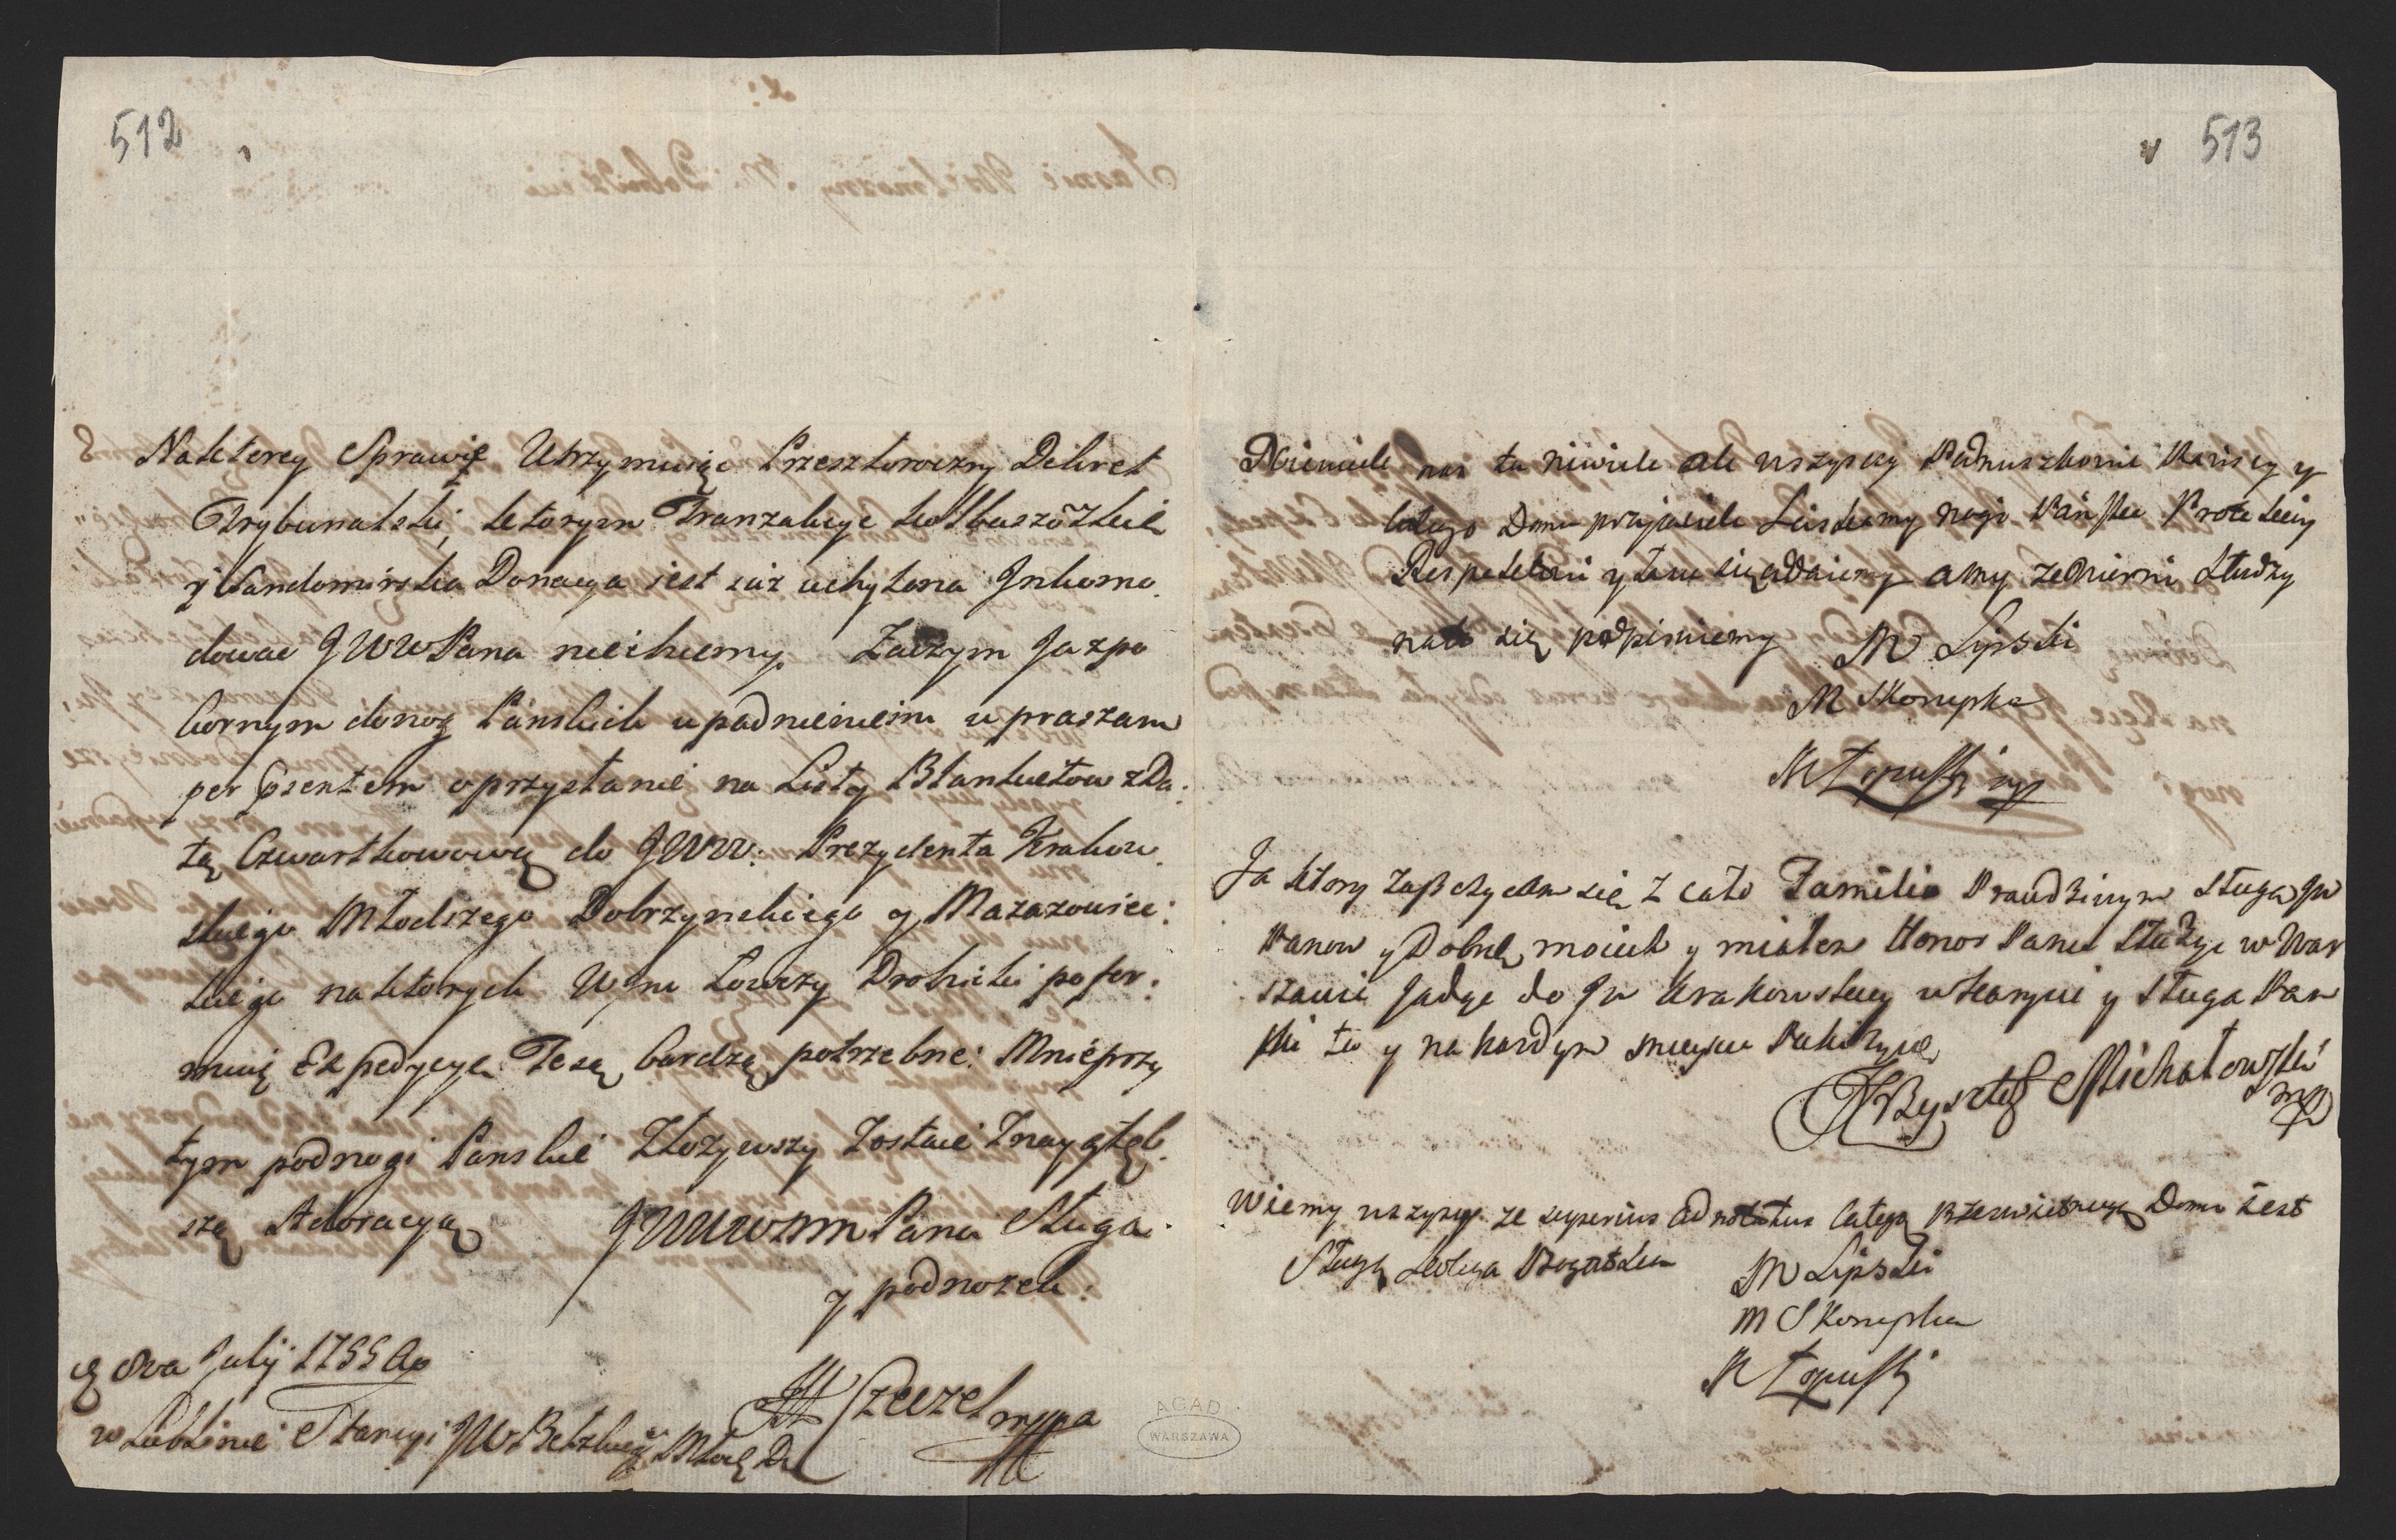 512
Naktorey Sprawię Utrzymuiąc Przeszłoroczny Dekret
Trybunalski, ktorym Tranzakcye kolbuszōzkie
y Sandomirska Donacya iest iuz uchylona Inkomo.
dować JWWPana niechcemy. Zaczym Ja zpo
kornym donog Panskich upadnieniem upraszam
per Psentem o przysłanie na Listy Blankietow z Da:
tą Czwartkowową do JWW: Prezydenta Krakow.
skiego Młodszego Dobrzynskiego y Mazazowiec:
kiego naktorych WJm Łowczy Drohicki pofor:
muię Expedycye. Te są bardzo potrzebne: Mnie przy
tym podnogi Panskie Złozywszy Zostaie Znaygłęb.
szą Adoracyą JWWWMPana Sługa.
y podnozek:
8va Julij 1755
w Lublinie Stancyi JW Bełzkiego
513
nas tu niwiele ale wszyscy Podnuszkowie Panscy y
całego Domu przyjaciele Sciskamy nogi Pańskie Protekciy
Respektowi y Łasce się oddaiemy a my ze Wierni Słudzy
nato się podpisuiemy M Lipski
M Skorupka
M Łopuski mp
Ja ktory zaszczycam się z cało Familio Prawdziwym Sługą JW
Panow y Dobrԍ moich y miałem Honor Panu Służyc w War
szawie Jadąc do JW Krakowskiey y Sługa Pan
ski tu y na kazdym mieyscu
Krzysztof Michałowski
mp
Wiemy wszyscy ze superius adnotatus całego Prześwietnego Domu iest
Sługą M Lipski
M Skorupka
M Łopuski
AGAD
WARSZAWA